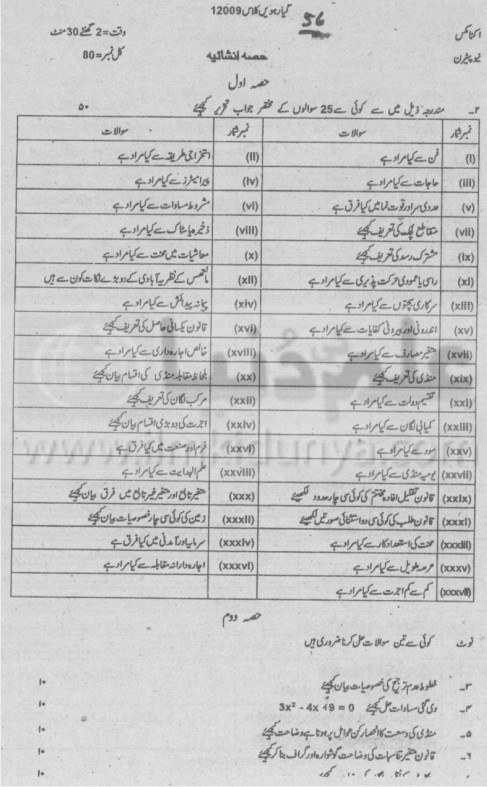 گیارہویں کلاس 12009
56
اکنامکس
وقت=2 گھنٹے 30 منٹ
نیو پیٹرن
حصہ انشائیہ
کل نمبر=80
حصہ اول
۲۔ مندرجہ ذیل میں سے کوئی سے 25 سوالوں کے مختصر جواب تحریر کیجئے ۵۰
نمبر شمار سوالات نمبر شمار سوالات
(i) فن سے کیا مراد ہے (ii) استخراجی طریقہ سے کیا مراد ہے
(iii) حاجات سے کیا مراد ہے (iv) پیرامیٹرز سے کیا مراد ہے
(v) عددی سر اور قوت نما میں کیا فرق ہے (vi) مشروط مساوات سے کیا مراد ہے
(vii) متقاطع لچک کی تعریف کیجئے (viii) ذخیرہ یا سٹاک سے کیا مراد ہے
(ix) مشترک رسد کی تعریف کیجئے (x) معاشیات میں محنت سے کیا مراد ہے
(xi) راسی یا عمودی حرکت پذیری سے کیا مراد ہے (xii) مالتھس کے نظریہ آبادی کے دو بڑے نکات کون سے ہیں
(xiii) سرکاری بچتوں سے کیا مراد ہے (xiv) پیمانہ پیدائش سے کیا مراد ہے
(xv) اندرونی اور بیرونی کفایات سے کیا مراد ہے (xvi) قانون یکسانی حاصل کی تعریف کیجئے
(xvii) متغیر مصارف سے کیا مراد ہے (xviii) خالص اجارہ داری سے کیا مراد ہے
(xix) منڈی کی تعریف کیجئے (xx) بلحاظ مقابلہ منڈی کی اقسام بیان کیجئے
(xxi) تقسیم دولت سے کیا مراد ہے (xxii) مرکب لگان کی تعریف کیجئے
(xxiii) کمیابی لگان سے کیا مراد ہے (xxiv) اجرت کی دو بڑی اقسام بیان کیجئے
(xxv) سود سے کیا مراد ہے (xxvi) فرم اور صنعت میں کیا فرق ہے
(xxvii) یومیہ منڈی سے کیا مراد ہے (xxviii) علم الہدایت سے کیا مراد ہے
(xxix) قانون تقلیل افادہ مختتم کی کوئی سی چار حدود لکھیئے (xxx) متغیر تابع اور متغیر غیر تابع میں فرق بیان کیجئے
(xxxi) قانون طلب کی کوئی سی دو استثنائی صورتیں لکھیئے (xxxii) زمین کی کوئی سی چار خصوصیات بیان کیجئے
(xxxiii) محنت کی استعداد کار سے کیا مراد ہے (xxxiv) سرمایہ اور آمدنی میں کیا فرق ہے
(xxxv) عرصہ طویل سے کیا مراد ہے (xxxvi) اجارہ دارانہ مقابلہ سے کیا مراد ہے
(xxxvii) کم سے کم اجرت سے کیا مراد ہے
حصہ دوم
نوٹ کوئی سے تین سوالات حل کرنا ضروری ہیں
۳۔ خطوط عدم ترجیح کی خصوصیات بیان کیجئے ۱۰
۴۔ دی گئی مساوات حل کیجئے 3x² - 4x + 9 = 0 ۱۰
۵۔ منڈی کی وسعت کا انحصار کن عوامل پر ہوتا ہے وضاحت کیجئے ۱۰
۶۔ قانون متغیر تناسبات کی وضاحت گوشوارہ اور گراف بنا کر کیجئے ۱۰
۱۰